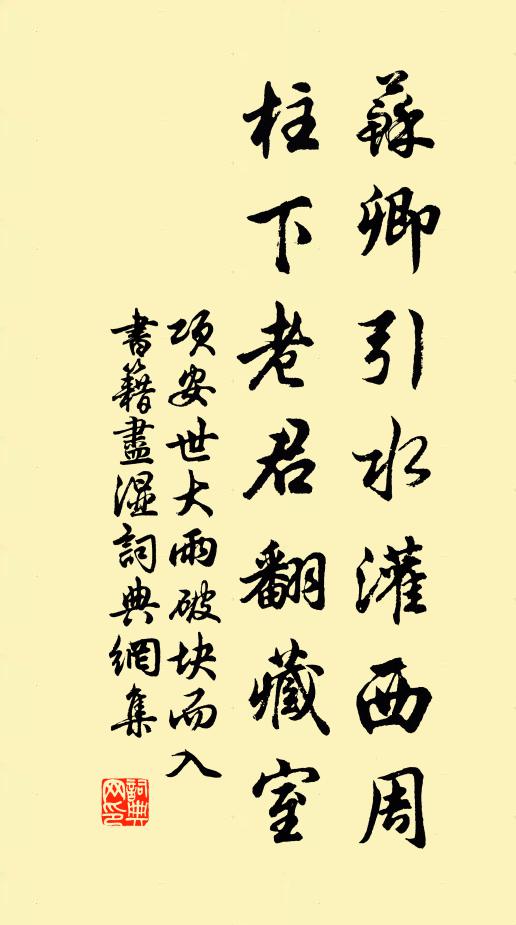 蘇卿引水灌西周
柱下老君翻藏室
项安世大雨破块而入
書籍盡濕詞典網集
詞典网印